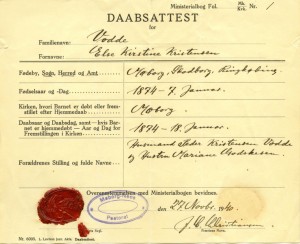 Ministerialbog Fol.
Nr. 1
Kv.
DAABSATTEST
for
Familienavn: Vodde
Fornavne: Else Kirstine Kristensen
Fødeby, Sogn, Herred og Amt. Møborg, Skodborg, Ringkøbing
Fødselsaar og Dag: 1874 - 7. Januar.
Kirken, hvori Barnet er døbt eller frem-
stillet efter Hjemmedaab: Møborg.
Daabsaar og Daabsdag, samt — hvis Barnet
er hjemmedøbt — Aar og Dag for
Fremstillingen i Kirken: 1874 - 18. Januar.
Forældrenes Stilling og fulde Navn: Husmand Peder Kristensen Vodde
og Hustru Mariane
Overensstemmelsen med Ministerialbogen bevidnes.
Møborg-Nees
Pastorat
den 27 Novbr. 1940.
J. C. Christiansen